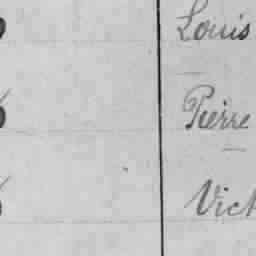 Louis
Pierre
Vict